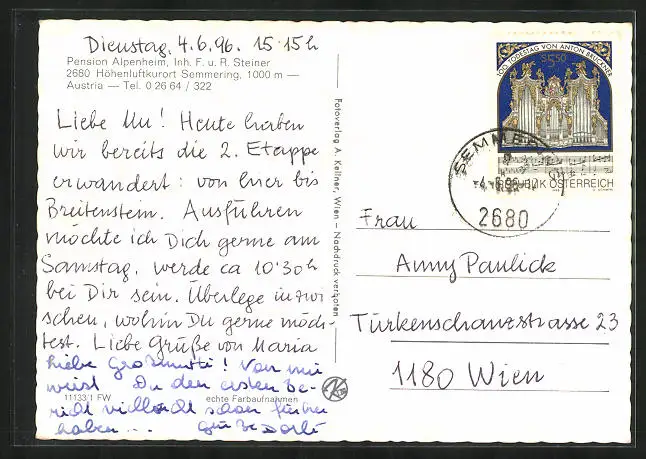 Dienstag, 4.6.96. 15.15h
Pension Alpenheim, Inh. F. u. R. Steiner
2680 Höhenluftkurort Semmering, 1000 m —
Austria — Tel. 0 26 64 / 322
Liebe Mu! Heute haben
wir bereits die 2. Etappe
erwandert: von hier bis
Breitenstein. Ausführen
möchte ich Dich gerne am
Samstag, werde ca 10'30h
bei Dir sein. Überlege inzwi
schen, wohin Du gerne möch-
test. Liebe Grüße von Maria
Liebe Großmutti! Von mir
wirst Du den ersten Be-
richt vielleicht schon früher
haben...
11133/1 FW
echte Farbaufnahmen
Fotoverlag A. Kellner, Wien – Nachdruck verboten
100. TODESTAG VON ANTON BRUCKNER
S 5.50
REPUBLIK ÖSTERREICH
SEMMERING
2680
Frau
Anny Paulick
Türkenschanzstrasse 23
1180 Wien